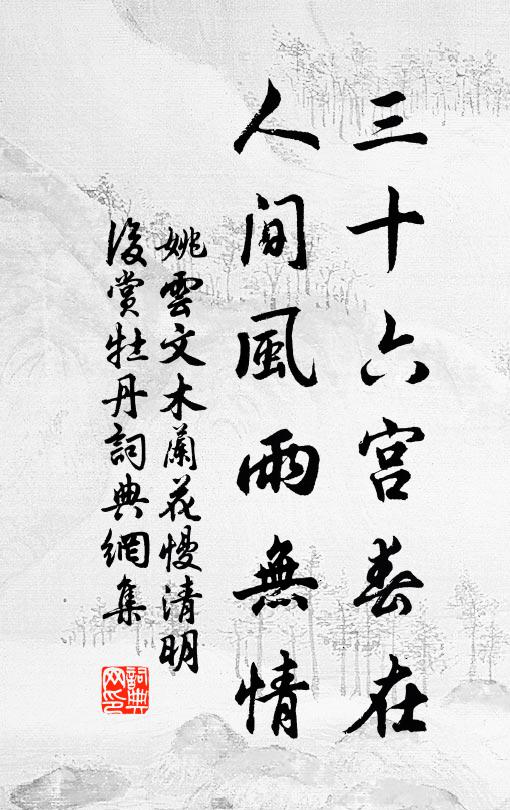 三十六宮春在
人間風雨無情
姚雲文木蘭花慢清明
後賞牡丹詞典網集
詞典
网印